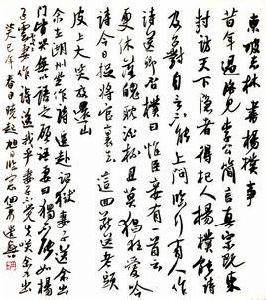 東坡志林書楊樸事
昔年過洛見李公簡言真宗既東
封訪天下隱者得杞人楊樸能詩
及召對自言不能上問臨行有人作
詩送卿否樸曰惟臣妻有一首云
更休落魄耽杯酒且莫猖狂愛吟
詩今日捉將官裏去這回斷送老頭
皮上大笑放還山
余在湖州坐作詩追赴詔獄妻子送余出
門皆哭無以語之顧語妻曰獨不能如楊
子雲妻作詩送我乎妻子不覺失笑余出
癸巳年春日